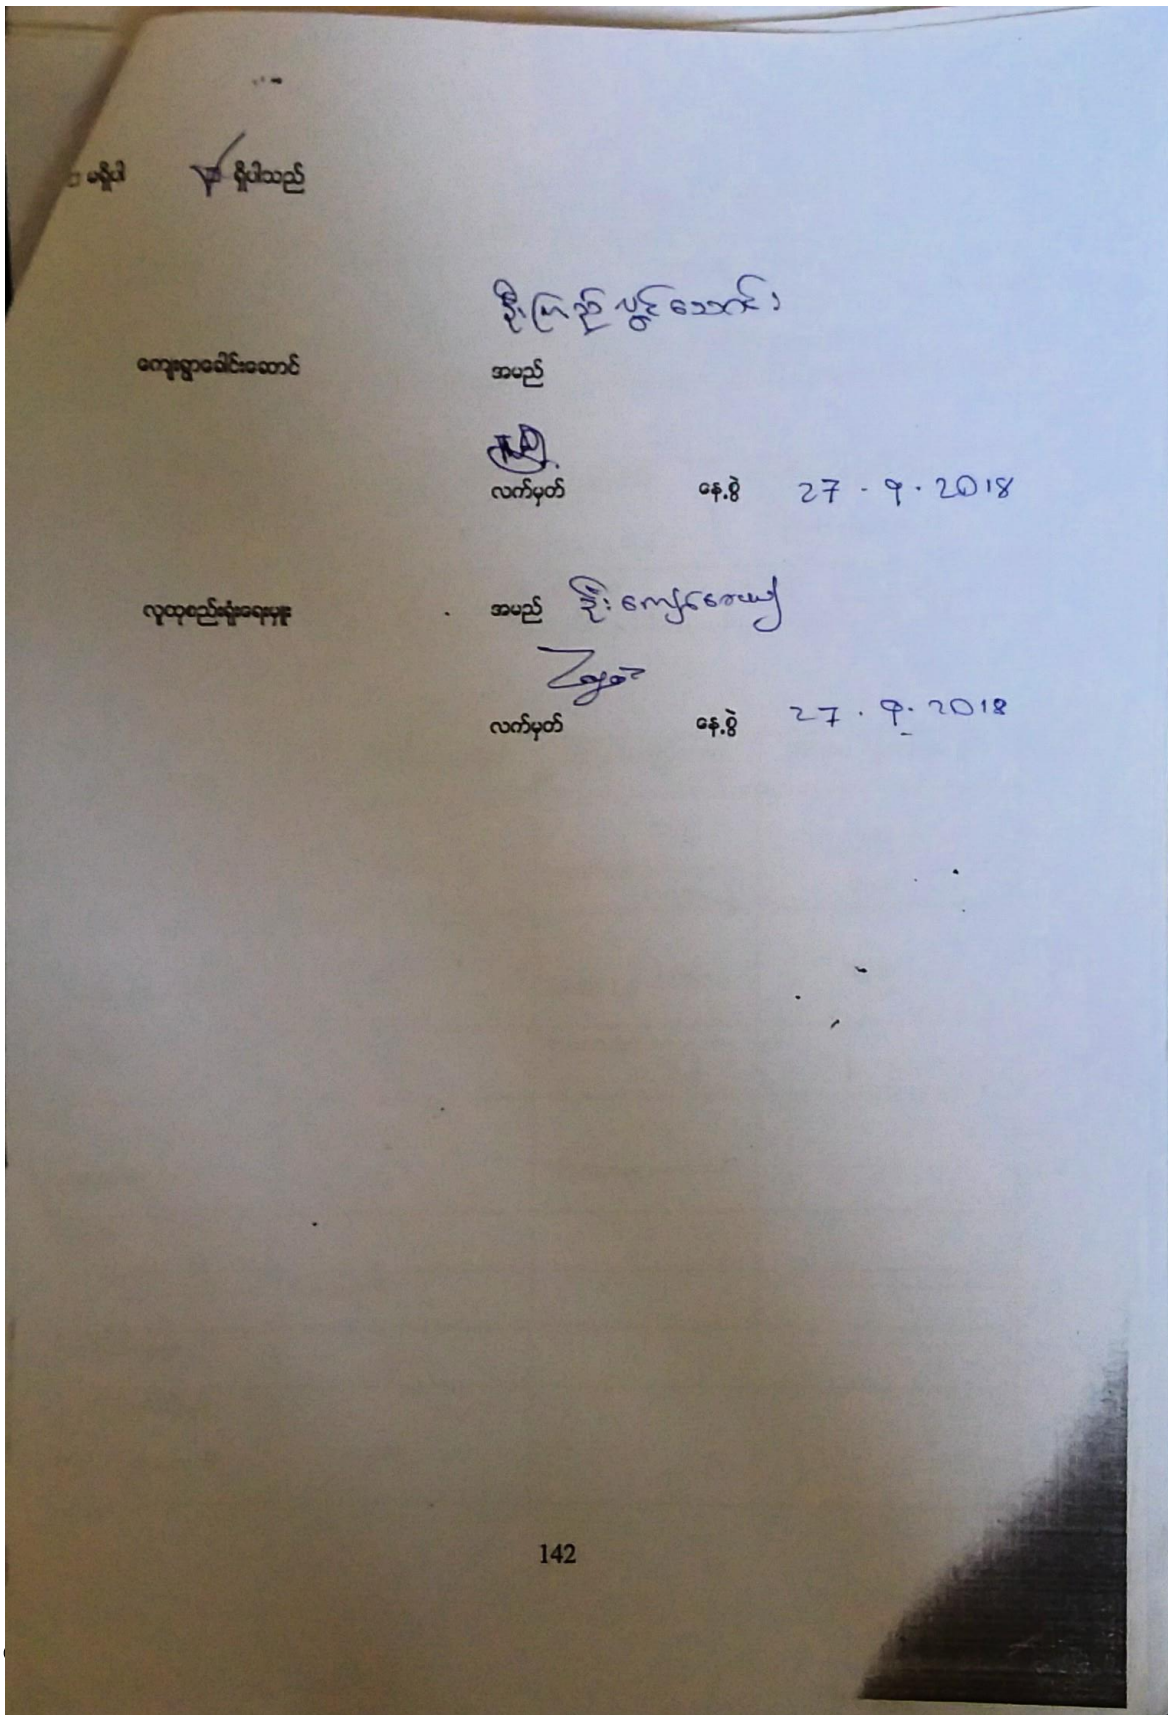 မရှိပါ ရှိပါသည်
ဦးပြည့်လွင်အောင်
ကျေးရွာခေါင်းဆောင် အမည်
လက်မှတ် နေ့စွဲ 27 . 9 . 2018
လူထုစည်းရုံးရေးမှူး အမည် ဦး
လက်မှတ် နေ့စွဲ 27 . 9 . 2018
142